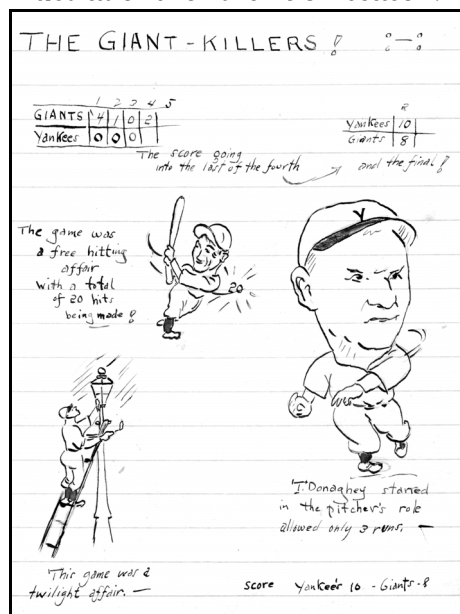 THE GIANT-KILLERS!
1 2 3 4 5
GIANTS 4 1 0 2
Yankees 0 0 0
R
Yankees 10
Giants 8
The score going
into the last of the fourth
and the final!
The game was
a free hitting
affair
with a total
of 20 hits
being made!
20
Y
"I." Donaghey starred
in the pitcher's role
allowed only 3 runs. —
This game was a
twilight affair. —
score Yankee's 10 - Giants - 8